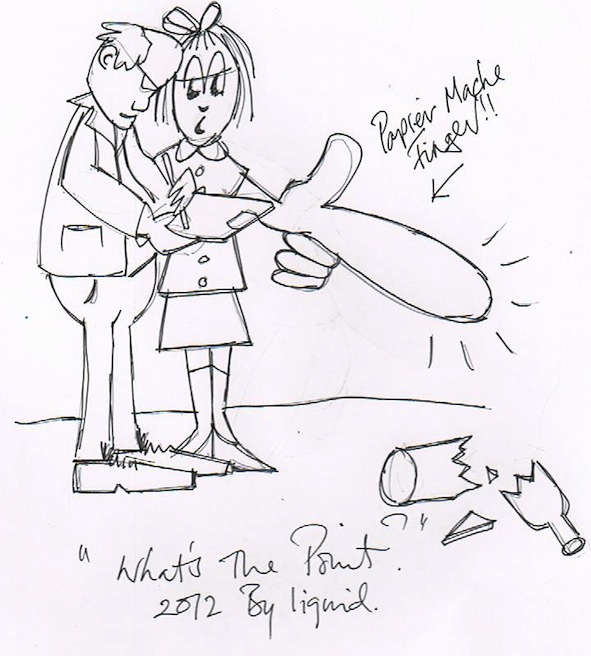 Papier Mache
Finger!!
"What's The Point.?"
2012 By liquid.